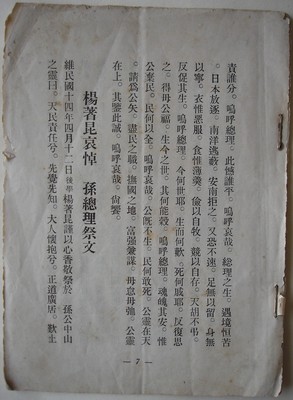 責誰分。嗚呼總理。此憾誰平。嗚呼哀哉。總理之生。遇境恒苦
。日本放逐。南洋逃竄。安南拒之。又恐不速。足無以留。身無
以寧。衣惟惡服。食惟薄羹。儉以自牧。競以自存。天胡不弔。
反促其生。嗚呼總理。今何世耶。生而何歡。死何戚耶。反復思
之。得毋公福。生今之世。其何能穀。嗚呼總理。魂魄其安。惟
公棄民。民何以全。嗚呼哀哉。公旣不生。民何敢死。公靈在天
。請爲公矢。盡民之職。撫國之地。富强兼謀。毋息毋弛。公靈
在上。其鑒此誠。嗚呼哀哉。尙饗。
楊著昆哀悼　孫總理祭文
維民國十四年四月十二日後學楊著昆謹以心香敬祭於　孫公中山
之靈曰。天民責任兮。先覺先知。大人懷抱兮。正道廣居。歎土
— 7 —